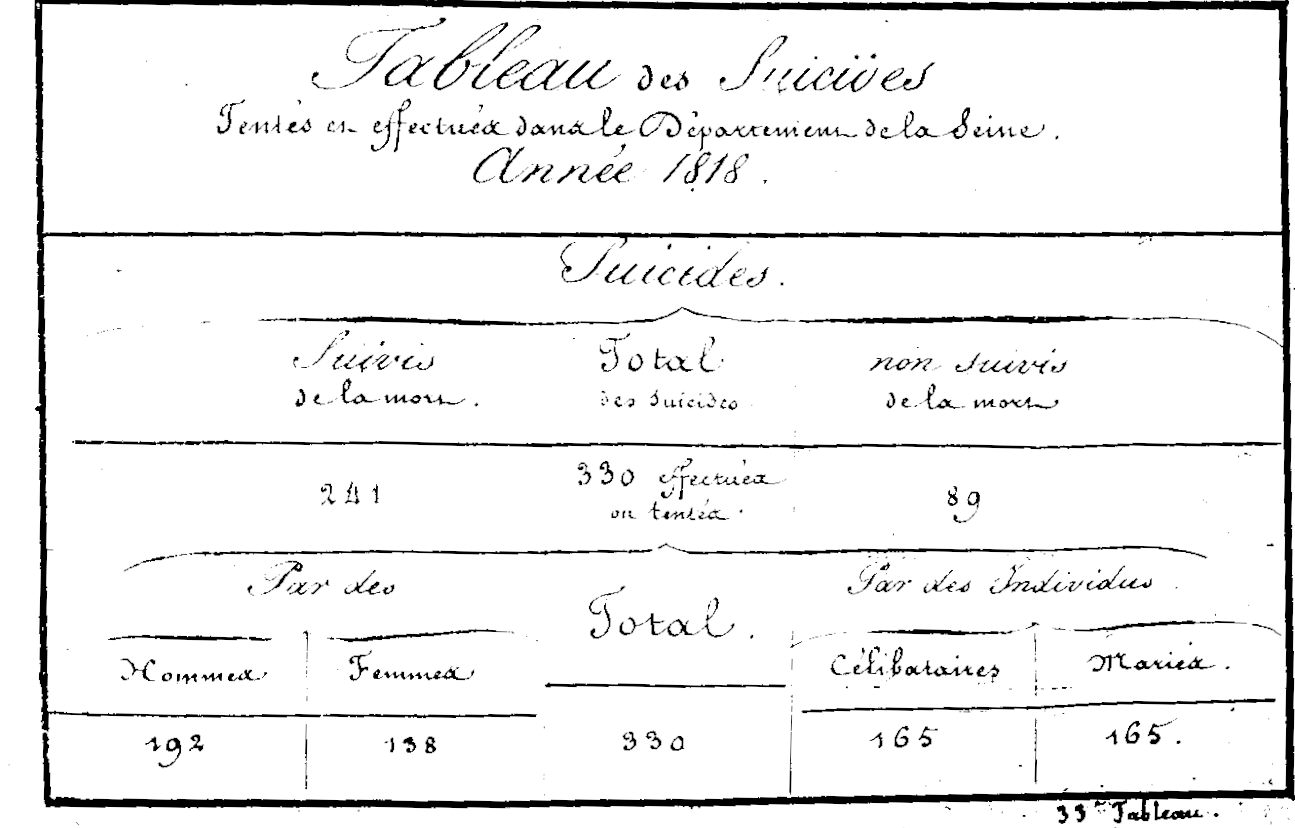 Tableau des Suicides
Tentés et effectués dans le Département de la Seine.
Année 1818.
Suicides.
Suivis
de la mort.
Total
des Suicides
non suivis
de la mort
241
330 effectués
ou tentés.
89
Par des
Total.
Par des Individus.
Hommes
Femmes
Célibataires
Mariés.
192
138
330
165
165.
33me Tableau.